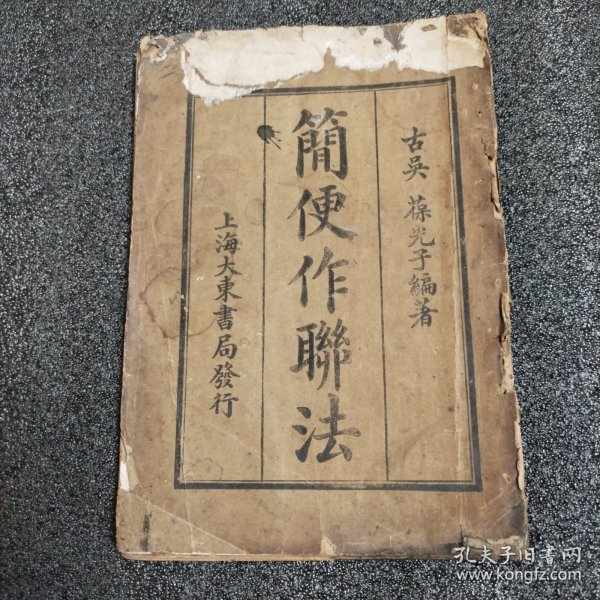 古吳 葆光子編著
簡便作聯法
上海大東書局發行
孔夫子旧书网
www.kongfz.com